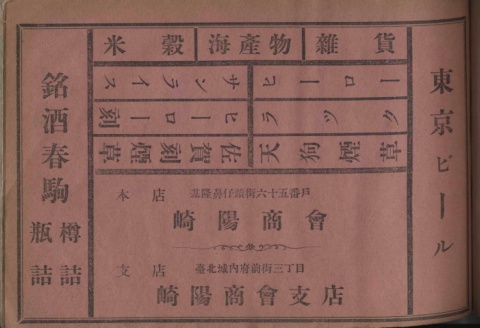 東京ビール
米穀
海產物
雜貨
サンライス
ヒーロー
ヒーロー刻
ラツク
佐賀刻煙草
天狗煙草
本店 基隆鼻仔頭街六十五番戶
崎陽商會
支店 臺北城內府前街三丁目
崎陽商會支店
銘酒春駒
樽詰
瓶詰